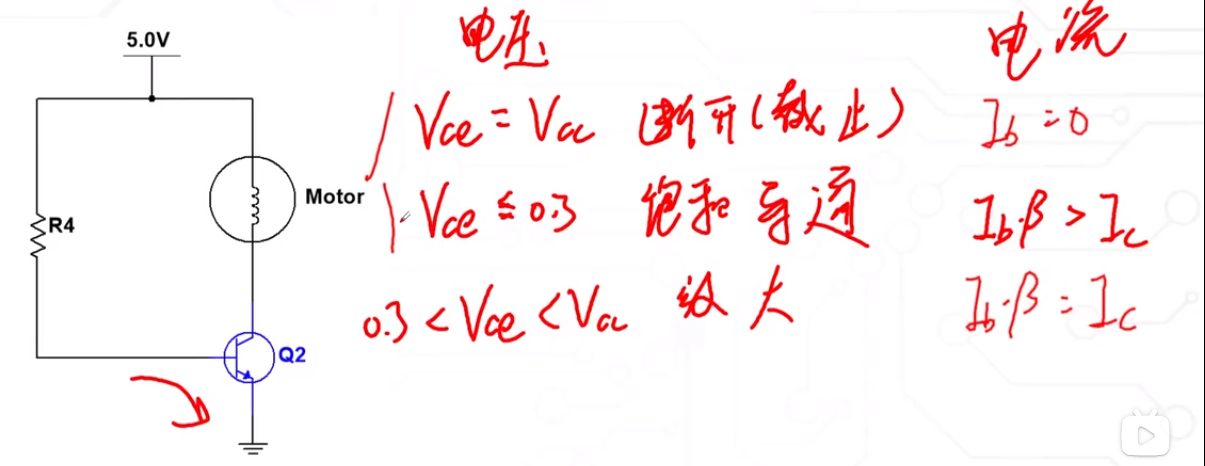 5.0V
R4
Motor
Q2
电压 电流
Vce = Vcc 断开(截止) Ib = 0
Vce ≤ 0.3 饱和导通 Ib·β > Ic
0.3 < Vce < Vcc 放大 Ib·β = Ic